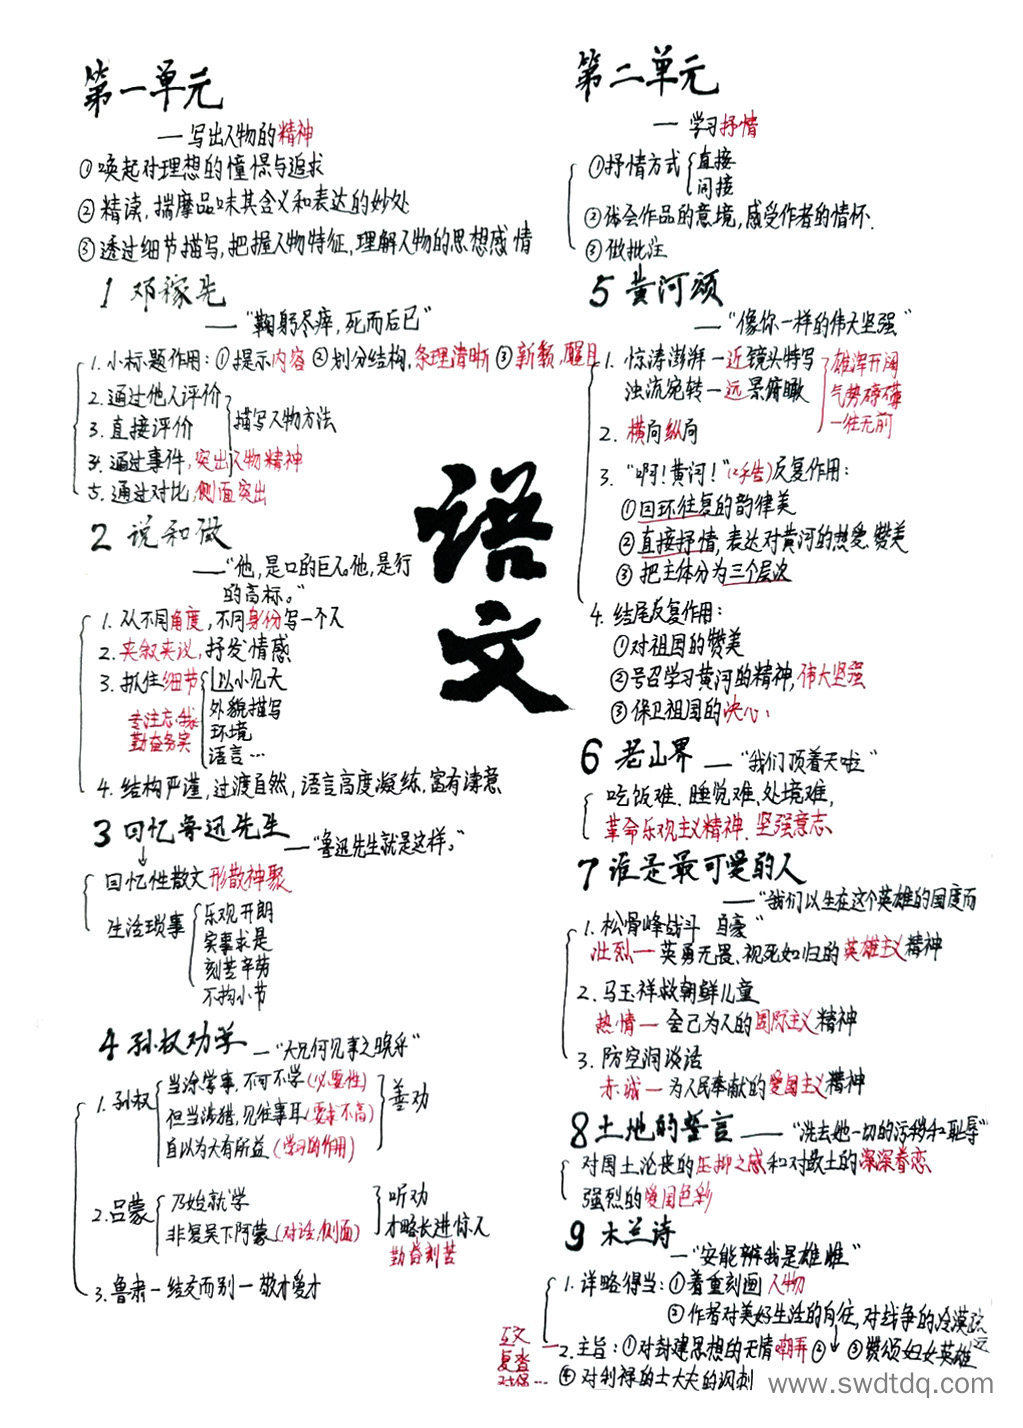 第一单元
—写出人物的精神
①唤起对理想的憧憬与追求
②精读,揣摩品味其含义和表达的妙处
③透过细节描写,把握人物特征,理解人物的思想感情
1 邓稼先
—“鞠躬尽瘁,死而后已”
1.小标题作用:①提示内容 ②划分结构,条理清晰 ③新颖,醒目
2.通过他人评价
3.直接评价
描写人物方法
4.通过事件,突出人物精神
5.通过对比,侧面突出
2 说和做
—“他,是口的巨人。他,是行
的高标。”
1.从不同角度,不同身份写一个人
2.夹叙夹议,抒发情感
3.抓住细节
以小见大
外貌描写
环境
语言…
专注忘我
勤奋务实
4.结构严谨,过渡自然,语言高度凝练,富有诗意
3 回忆鲁迅先生
—“鲁迅先生就是这样。”
回忆性散文 形散神聚
生活琐事
乐观开朗
实事求是
刻苦辛劳
不拘小节
4 孙权劝学
—“大兄何见事之晚乎”
1.孙权
当涂掌事,不可不学(必要性)
但当涉猎,见往事耳(要求不高)
自以为大有所益(学习的作用)
善劝
2.吕蒙
乃始就学
非复吴下阿蒙(对话,侧面)
听劝
才略长进惊人
勤奋刻苦
3.鲁肃—结交而别—敬才爱才
语文
第二单元
—学习抒情
①抒情方式
直接
间接
②体会作品的意境,感受作者的情怀.
③做批注
5 黄河颂
—“像你一样的伟大坚强”
1.惊涛澎湃—近镜头特写
浊流宛转—远景俯瞰
雄浑开阔
气势磅礴
一往无前
2.横向纵向
3.“啊!黄河!”反复作用:
①回环往复的韵律美
②直接抒情,表达对黄河的热爱、赞美
③把主体分为三个层次
4.结尾反复作用:
①对祖国的赞美
②号召学习黄河的精神,伟大坚强
③保卫祖国的决心:
6 老山界—“我们顶着天啦”
吃饭难、睡觉难、处境难,
革命乐观主义精神、坚强意志
7 谁是最可爱的人
—“我们以生在这个英雄的国度而
自豪”
1.松骨峰战斗
壮烈—英勇无畏、视死如归的英雄主义精神
2.马玉祥救朝鲜儿童
热情—舍己为人的国际主义精神
3.防空洞谈话
赤诚—为人民奉献的爱国主义精神
8 土地的誓言—“洗去她一切的污秽和耻辱”
对国土沦丧的压抑之感和对故土的深深眷恋
强烈的爱国色彩
9 木兰诗
—“安能辨我是雄雌”
1.详略得当:①着重刻画人物
②作者对美好生活的向往,对战争的冷漠疏远
2.主旨:①对封建思想的无情嘲弄 ② ③赞颂妇女英雄
④对利禄的士大夫的讽刺
互文
复沓
对偶…
www.swdtdq.com